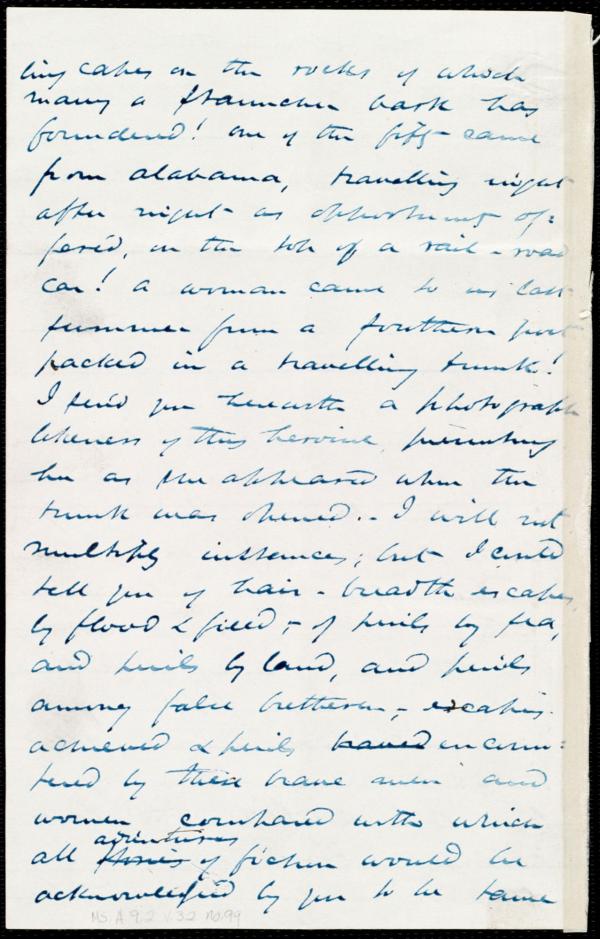 ling capes on the rocks of which
many a stauncher bark has
foundered! One of the fifty came
from Alabama, travelling night
after night as opportunity of=
fered, on the top of a rail-road
car! A woman came to us last
summer from a Southern port
packed in a travelling trunk!
I send you herewith a photograph
likeness of this heroine, presenting
her as she appeared when the
trunk was opened. - I will not
multiply instances; but I could
tell you of hair-breadth escapes
by flood & field, - of perils by sea,
and perils by land, and perils
among false bretheren, - escapes
achieved & perils braved encoun=
tered by these brave men and
women compared with which
adventures
all stories of fiction would be
acknowledged by you to be tame
MS. A. 9.2 v.32 no.94